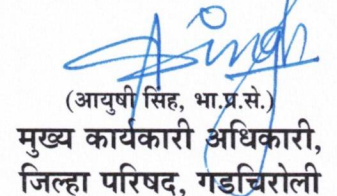 (आयुषी सिंह, भा.प्र.से.)
मुख्य कार्यकारी अधिकारी,
जिल्हा परिषद, गडचिरोली